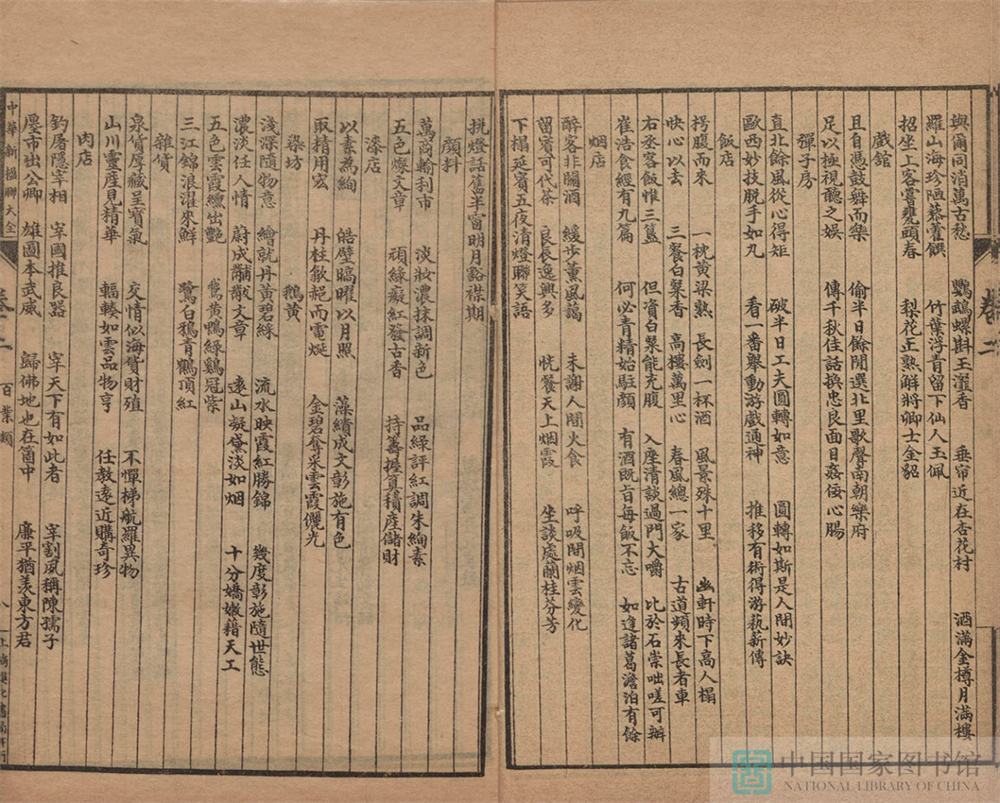 與爾同消萬古愁　鸚鵡螺斟玉瀣香　垂帘近在杏花村　酒滿金樽月滿樓
羅山海珍陋恭薑饌　竹葉浮青留下仙人玉佩
招坐上客嘗甕頭春　梨花正熟解將卿士金貂
戲館
且自憑鼓舞而樂　偷半日餘閒選北里歌聲南朝樂府
足以極視聽之娛　傳千秋佳話換忠良面目奸佞心腸
彈子房
直北餘風從心得矩　破半日工夫圓轉如意　圓轉如斯是人間妙訣
歐西妙技脫手如丸　看一番舉動游戲通神　推移有術得游藝薪傳
飯店
枵腹而來　一枕黃粱熟　長劍一杯酒　風景殊十里　幽軒時下高人榻
快心以去　三餐白粲香　高樓萬里心　春風總一家　古道頻來長者車
右丞客飯惟三簋　但資白粲能充腹　入座清談過門大嚼　比於石崇咄嗟可辦
崔浩食經有九篇　何必青精始駐顏　有酒既旨每飯不忘　如逢諸葛澹泊有餘
烟店
醉客非關酒　緩步薰風謁　未謝人間火食　呼吸間烟雲變化
留賓可代茶　良辰逸興多　恍餐天上烟霞　坐談處蘭桂芬芳
下榻延賓五夜清燈聯笑語
挑燈話舊半窗明月豁襟期
顏料
萬商輪利市　淡妝濃抹調新色　品綠評紅調朱絢素
五色燦文章　頑綠癡紅發古香　持籌握算積產儲財
漆店
以素為絢　皓壁暠曜以月照　藻繢成文彰施有色
取精用宏　丹柱歙赩而電烻　金碧奪采雲霞儷光
染坊　鵝黃
淺深隨物意　繪就丹黃碧綠　流水映霞紅勝錦　幾度彰施隨世態
濃淡任人情　蔚成黼黻文章　遠山凝黛淡如烟　十分嬌嫩藉天工
五色雲霞纏出艷　鵞黃鴨綠鷄冠紫
三江錦浪濯來鮮　鷺白鴉青鶴頂紅
雜貨
泉貨厚藏呈寶氣　交情似海貨財殖　不憚梯航羅異物
山川靈產見精華　輻輳如雲品物亨　任教遠近購奇珍
肉店
釣屠隱宰相　宰國推良器　宰天下有如此者　宰割夙稱陳孺子
屢市出公卿　雄圖本武威　歸佛地也在箇中　廉平猶羨東方君
中華新楹聯大全　卷二　百業類　八
卷二
中国国家图书馆
NATIONAL LIBRARY OF CHINA